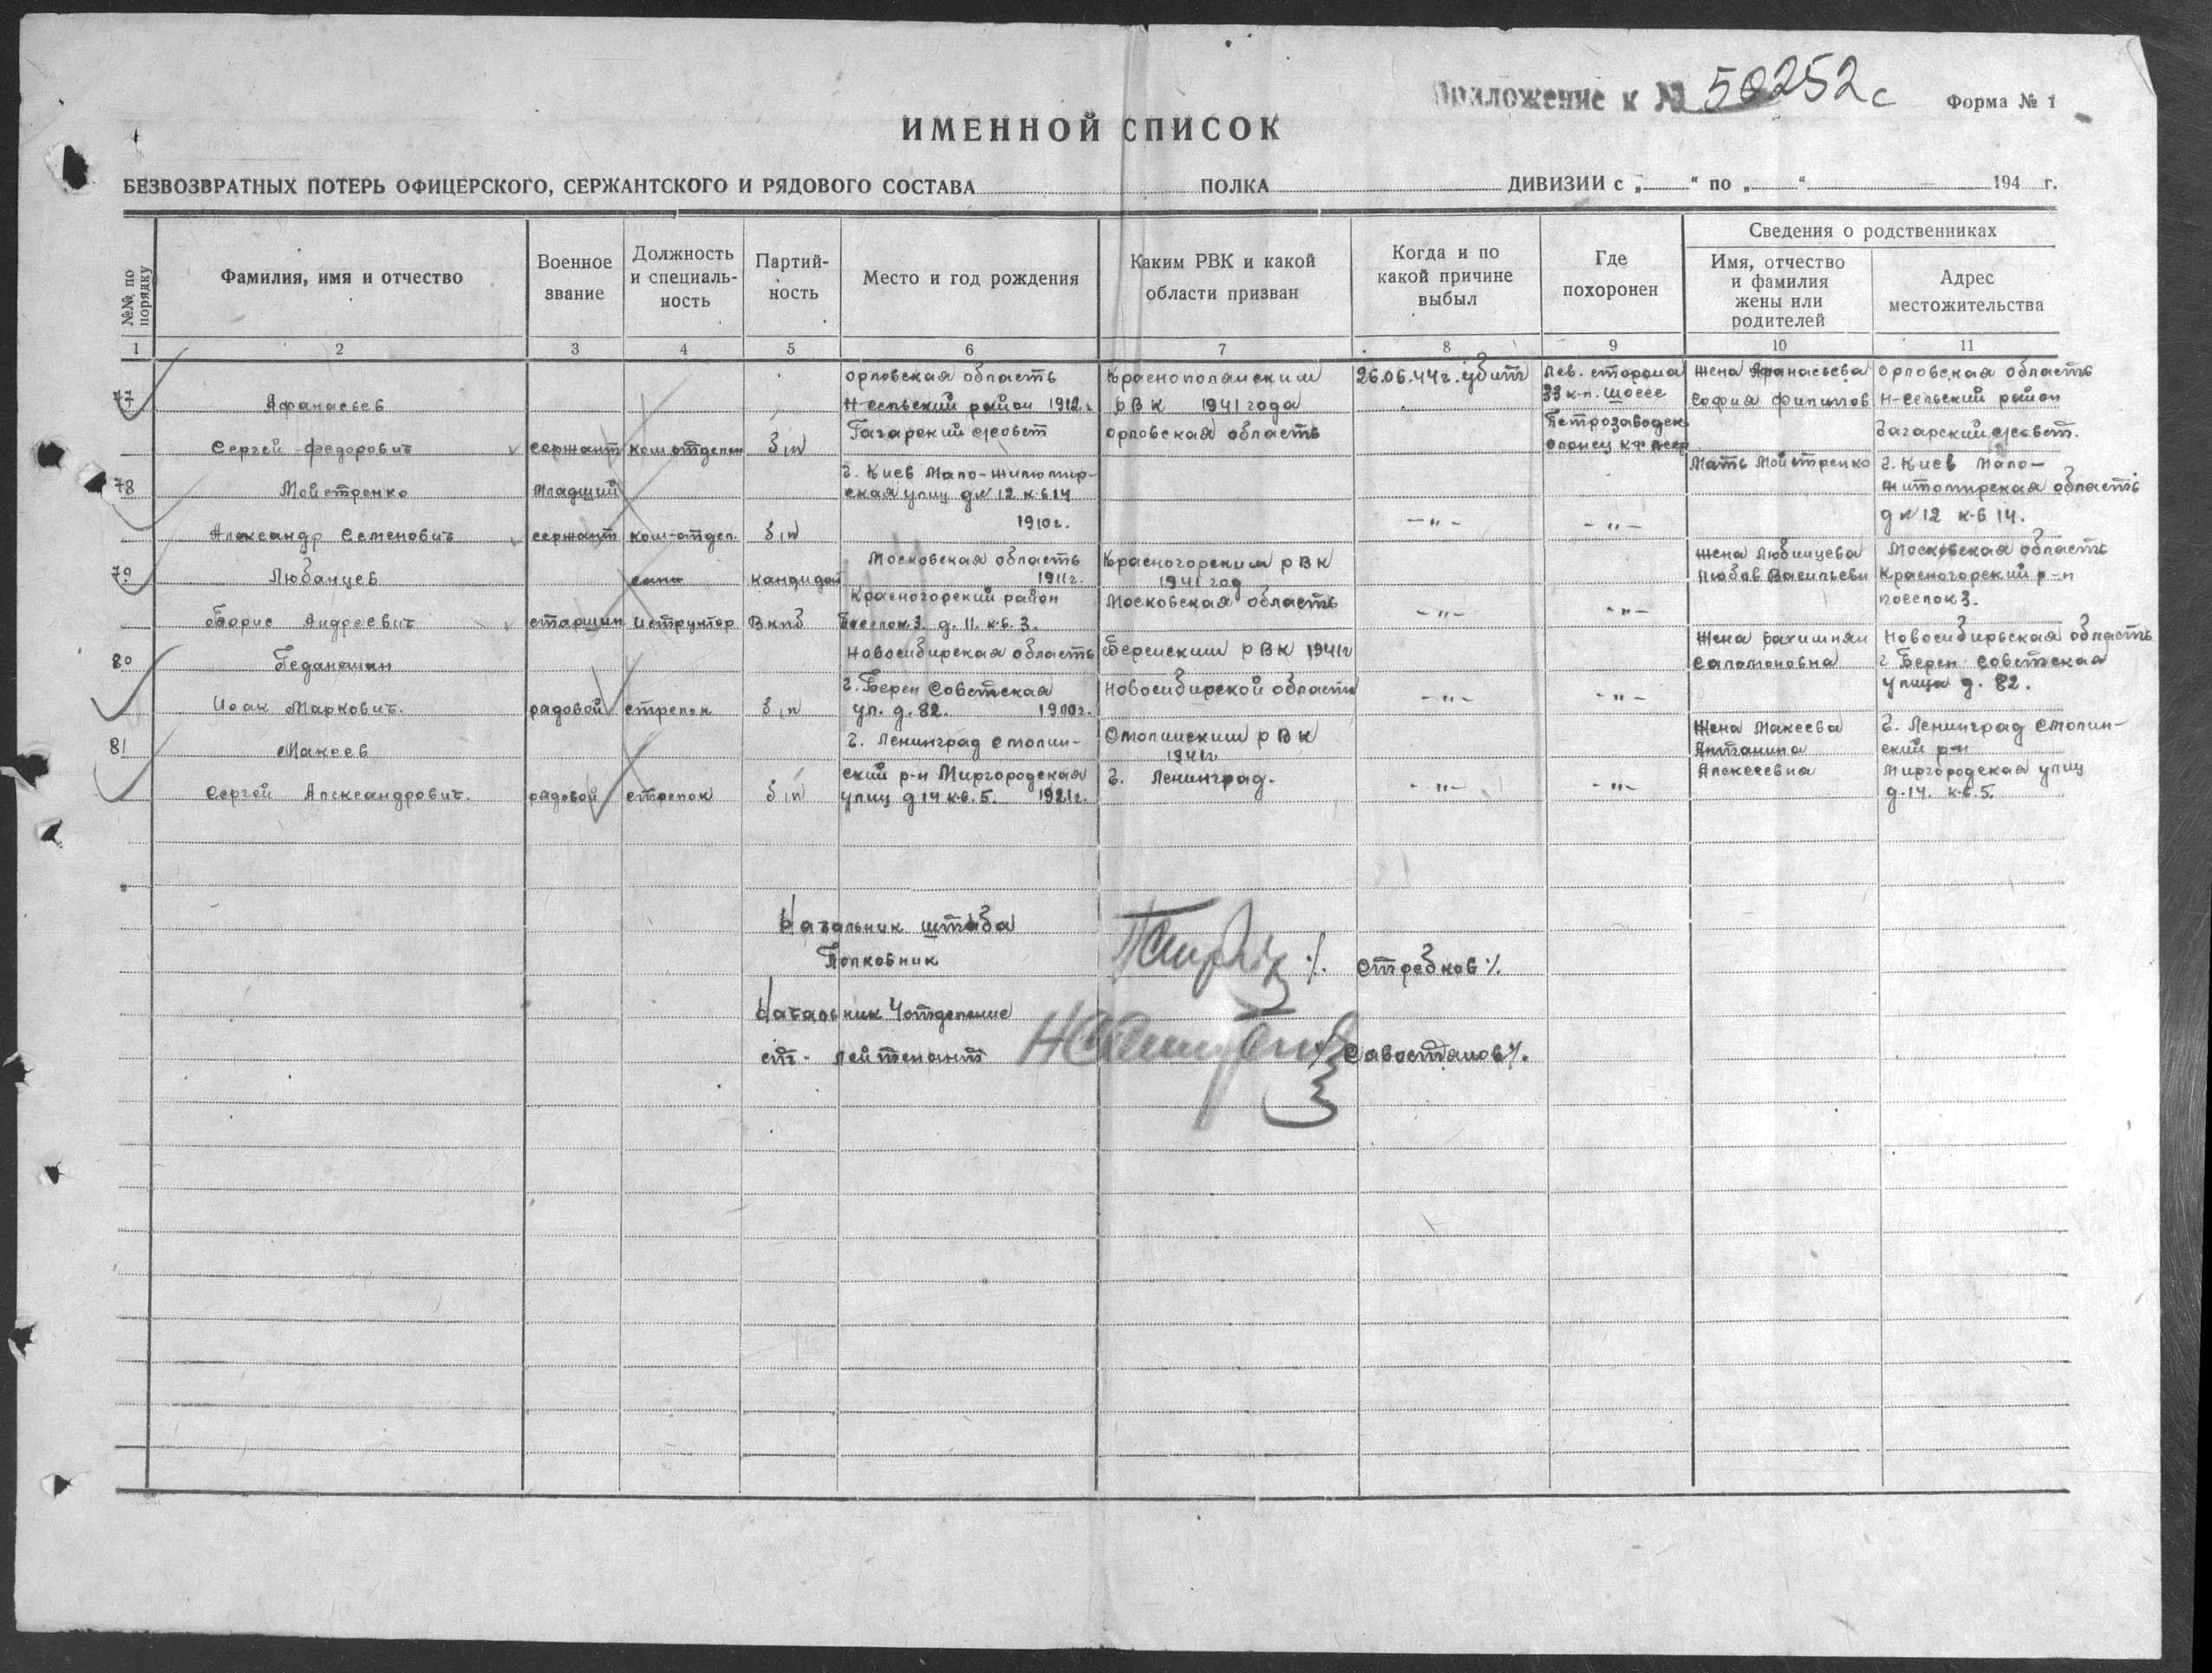 Приложение к № 50252с
Форма № 1
ИМЕННОЙ СПИСОК
БЕЗВОЗВРАТНЫХ ПОТЕРЬ ОФИЦЕРСКОГО, СЕРЖАНТСКОГО И РЯДОВОГО СОСТАВА ПОЛКА ДИВИЗИИ с „ “ по „ “ 194 г.
№№ по порядку
Фамилия, имя и отчество
Военное звание
Должность и специальность
Партийность
Место и год рождения
Каким РВК и какой области призван
Когда и по какой причине выбыл
Где похоронен
Сведения о родственниках
Имя, отчество и фамилия жены или родителей
Адрес местожительства
1 2 3 4 5 6 7 8 9 10 11
77
Афанасьев
Сергей Федорович
сержант
ком отделен
б/п
орловская область
Н-сельский район 1912г
Гагарский с/совет
Краснополянским
РВК 1941 года
орловская область
26.06.44г. убит
Лев. сторона
33 к-п. шоссе
Петрозаводск
Олонец
жена Афанасьева
София Филиппов
орловская область
Н-сельский район
с/совет.
78
Мойстренко
Александр Семенович
младший
сержант
ком-отдел.
б/п
г. Киев Мало-житомир-
ская улиц д№ 12 к-в 14
1910г.
-"-
-"-
Мать Мойстренко
г. Киев Мало-
житомирская область
д№ 12 к-в 14.
79
Любанцев
Борис Андреевич
старшин
сан
иструктор
кандидат
Вкпб
Московская область
1911г.
Красногорский район
Поселок 3. д. 11. к-в. 3.
Красногорским РВК
1941 год
Московская область
-"-
-"-
жена Любинцева
Любов Васильевн
Московская область
Красногорский р-н
поселок 3.
80
Геданоман
Исак Маркович.
рядовой
стрелок
б/п
Новосибирская область
г. Берен Советская
ул. д. 82. 1900г.
Беренским РВК 1941г
Новосибирской области
-"-
-"-
Жена
Саломоновна
Новосибирьская область
г Берен Советская
улица д. 82.
81
Макеев
Сергей Александрович.
рядовой
стрелок
б/п
г. Ленинград смолин-
ский р-н Миргородская
улиц д 14 кв. 5. 1921г.
Смолинским РВК
1941г
г. Ленинград.
-"-
-"-
Жена Макеева
Антанина
Алексеевна
г. Ленинград смолин-
ский р-н
Миргородская улиц
д. 14. к-в. 5.
Начальник штаба
Полковник /. Стребков /.
Начальник 4 отделение
ст- лейтенант /. Савостянов /.